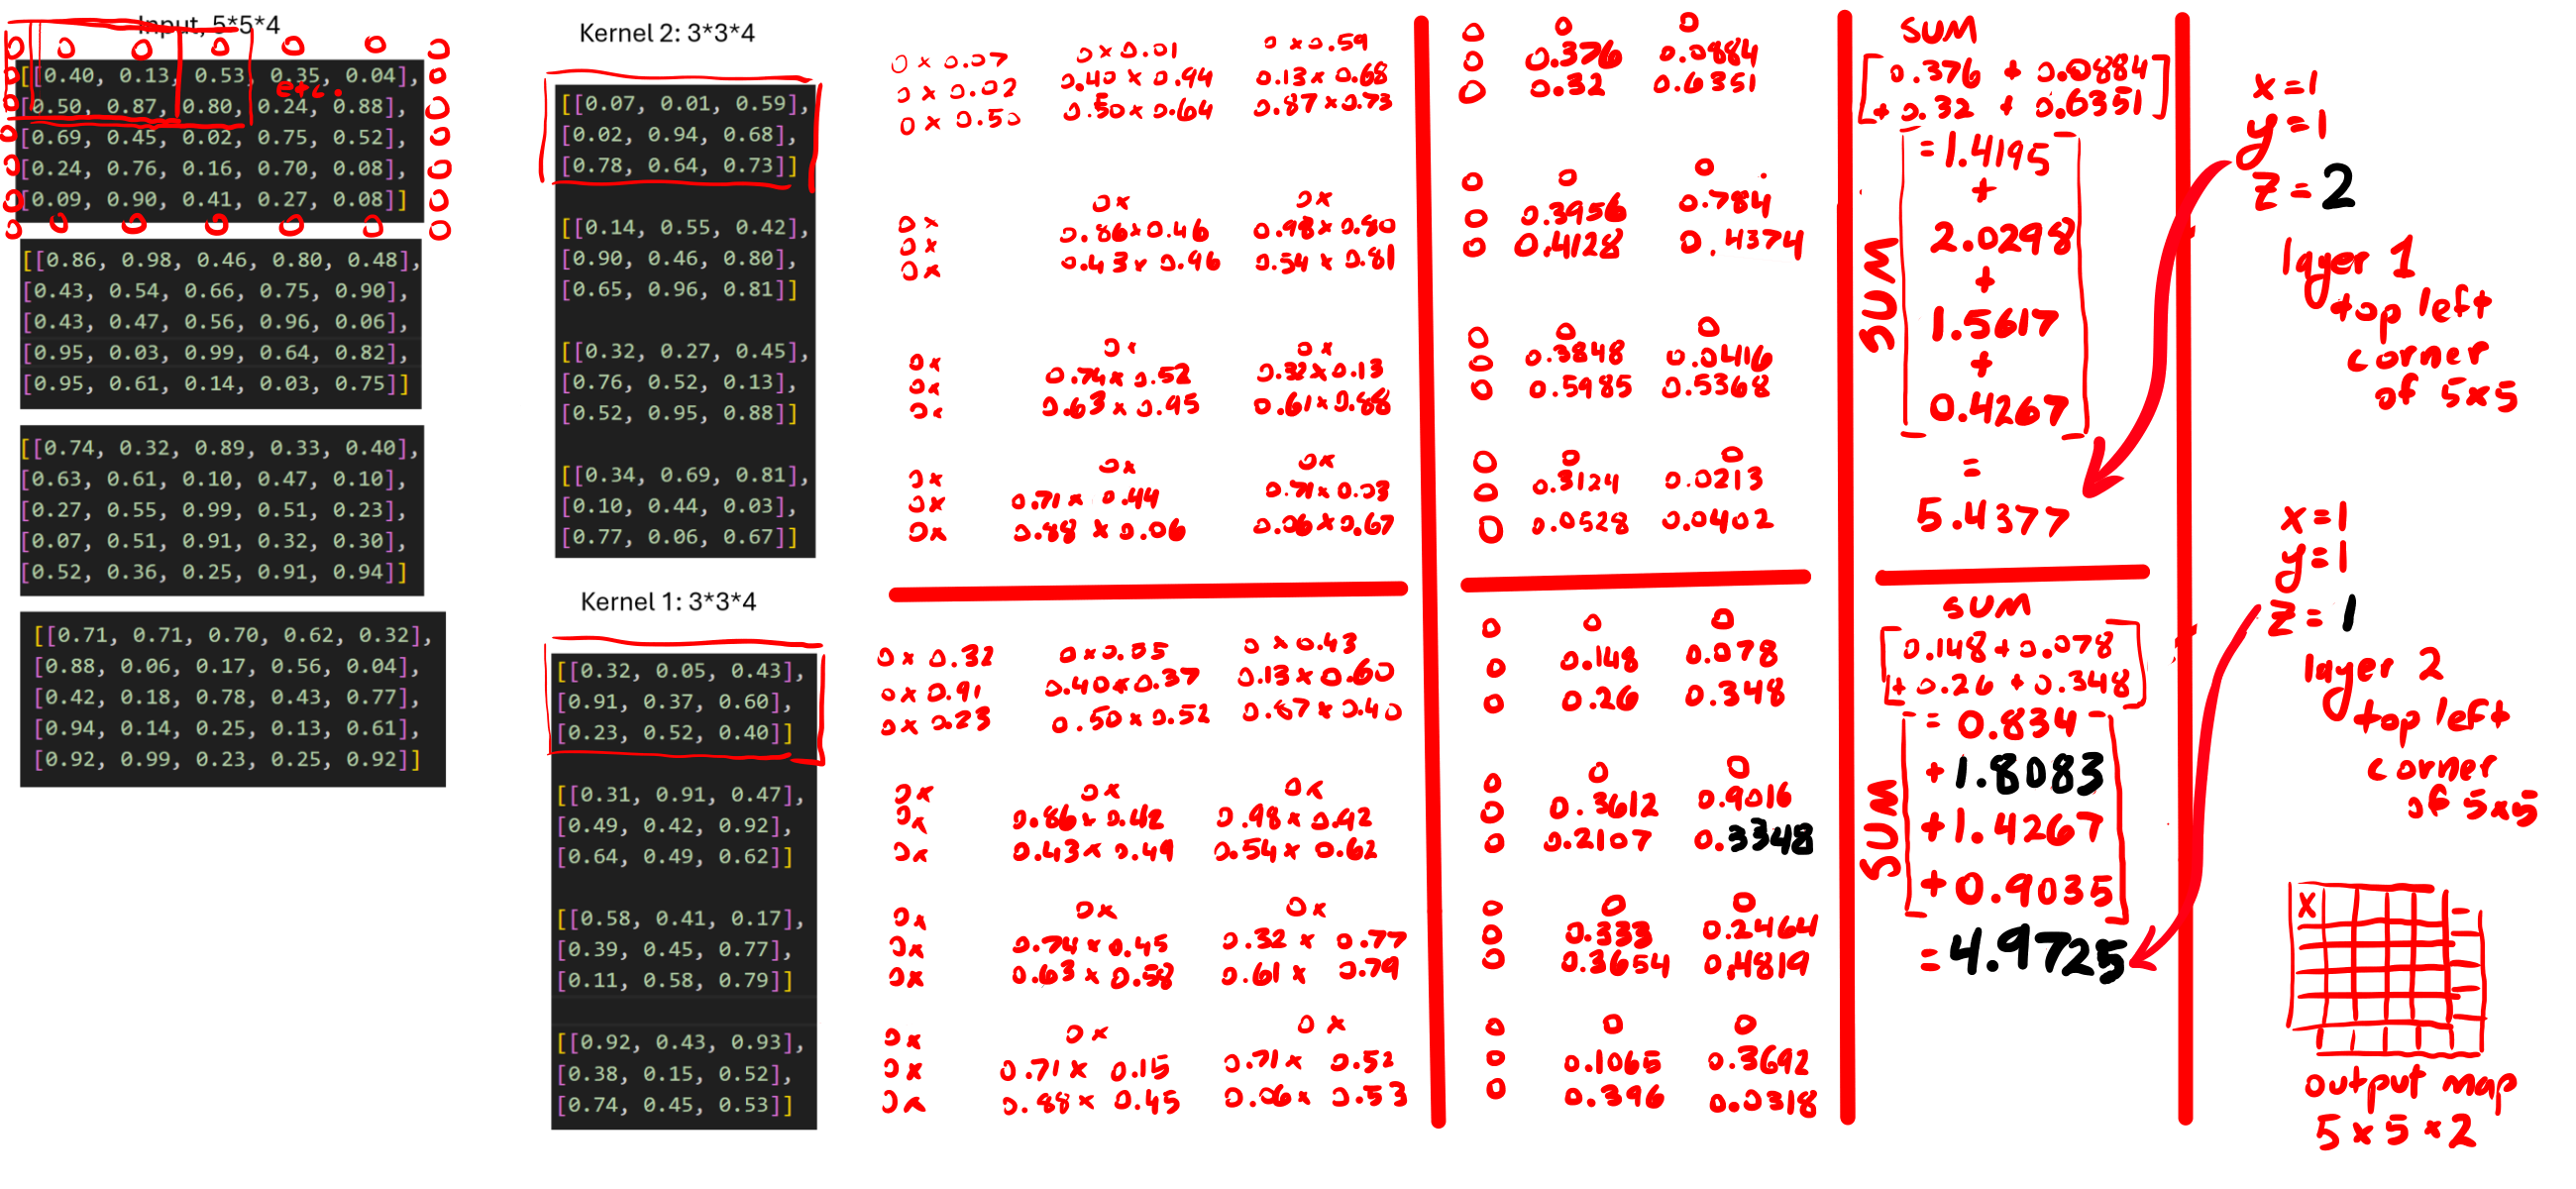 Input, 5*5*4
0 0 0 0 0 0 0
0 [[0.40, 0.13, 0.53, 0.35, 0.04], 0
etc.
0 [0.50, 0.87, 0.80, 0.24, 0.88], 0
0 [0.69, 0.45, 0.02, 0.75, 0.52], 0
0 [0.24, 0.76, 0.16, 0.70, 0.08], 0
0 [0.09, 0.90, 0.41, 0.27, 0.08]] 0
0 0 0 0 0 0 0
[[0.86, 0.98, 0.46, 0.80, 0.48],
[0.43, 0.54, 0.66, 0.75, 0.90],
[0.43, 0.47, 0.56, 0.96, 0.06],
[0.95, 0.03, 0.99, 0.64, 0.82],
[0.95, 0.61, 0.14, 0.03, 0.75]]
[[0.74, 0.32, 0.89, 0.33, 0.40],
[0.63, 0.61, 0.10, 0.47, 0.10],
[0.27, 0.55, 0.99, 0.51, 0.23],
[0.07, 0.51, 0.91, 0.32, 0.30],
[0.52, 0.36, 0.25, 0.91, 0.94]]
[[0.71, 0.71, 0.70, 0.62, 0.32],
[0.88, 0.06, 0.17, 0.56, 0.04],
[0.42, 0.18, 0.78, 0.43, 0.77],
[0.94, 0.14, 0.25, 0.13, 0.61],
[0.92, 0.99, 0.23, 0.25, 0.92]]
Kernel 2: 3*3*4
[[0.07, 0.01, 0.59],
[0.02, 0.94, 0.68],
[0.78, 0.64, 0.73]]
[[0.14, 0.55, 0.42],
[0.90, 0.46, 0.80],
[0.65, 0.96, 0.81]]
[[0.32, 0.27, 0.45],
[0.76, 0.52, 0.13],
[0.52, 0.95, 0.88]]
[[0.34, 0.69, 0.81],
[0.10, 0.44, 0.03],
[0.77, 0.06, 0.67]]
Kernel 1: 3*3*4
[[0.32, 0.05, 0.43],
[0.91, 0.37, 0.60],
[0.23, 0.52, 0.40]]
[[0.31, 0.91, 0.47],
[0.49, 0.42, 0.92],
[0.64, 0.49, 0.62]]
[[0.58, 0.41, 0.17],
[0.39, 0.45, 0.77],
[0.11, 0.58, 0.79]]
[[0.92, 0.43, 0.93],
[0.38, 0.15, 0.52],
[0.74, 0.45, 0.53]]
0 x 0.07 0 x 0.01 0 x 0.59
0 x 0.02 0.40 x 0.94 0.13 x 0.68
0 x 0.50 0.50 x 0.64 0.87 x 0.73
0 x 0 x 0 x
0 x 0.86 x 0.46 0.98 x 0.80
0 x 0.43 x 0.96 0.54 x 0.81
0 x 0 x 0 x
0 x 0.74 x 0.52 0.32 x 0.13
0 x 0.63 x 0.95 0.61 x 0.88
0 x 0 x 0 x
0 x 0.71 x 0.44 0.71 x 0.03
0 x 0.88 x 0.06 0.06 x 0.67
0 x 0.32 0 x 0.05 0 x 0.43
0 x 0.91 0.40 x 0.37 0.13 x 0.60
0 x 0.23 0.50 x 0.52 0.87 x 0.40
0 x 0 x 0 x
0 x 0.86 x 0.42 0.98 x 0.92
0 x 0.43 x 0.49 0.54 x 0.62
0 x 0 x 0 x
0 x 0.74 x 0.45 0.32 x 0.77
0 x 0.63 x 0.58 0.61 x 0.79
0 x 0 x 0 x
0 x 0.71 x 0.15 0.71 x 0.52
0 x 0.88 x 0.45 0.06 x 0.53
0 0 0
0 0.376 0.0884
0 0.32 0.6351
0 0 0
0 0.3956 0.784
0 0.4128 0.4374
0 0 0
0 0.3848 0.0416
0 0.5985 0.5368
0 0 0
0 0.3124 0.0213
0 0.0528 0.0402
0 0 0
0 0.148 0.078
0 0.26 0.348
0 0 0
0 0.3612 0.9016
0 0.2107 0.3348
0 0 0
0 0.333 0.2464
0 0.3654 0.4819
0 0 0
0 0.1065 0.3692
0 0.396 0.0318
SUM
[0.376 + 0.0884
+ 0.32 + 0.6351]
SUM
= 1.4195
+
2.0298
+
1.5617
+
0.4267
=
5.4377
SUM
[0.148 + 0.078
+ 0.26 + 0.348]
SUM
= 0.834
+ 1.8083
+ 1.4267
+ 0.9035
= 4.9725
x=1
y=1
z=2
layer 1
top left
corner
of 5x5
x=1
y=1
z=1
layer 2
top left
corner
of 5x5
X
output map
5 x 5 x 2